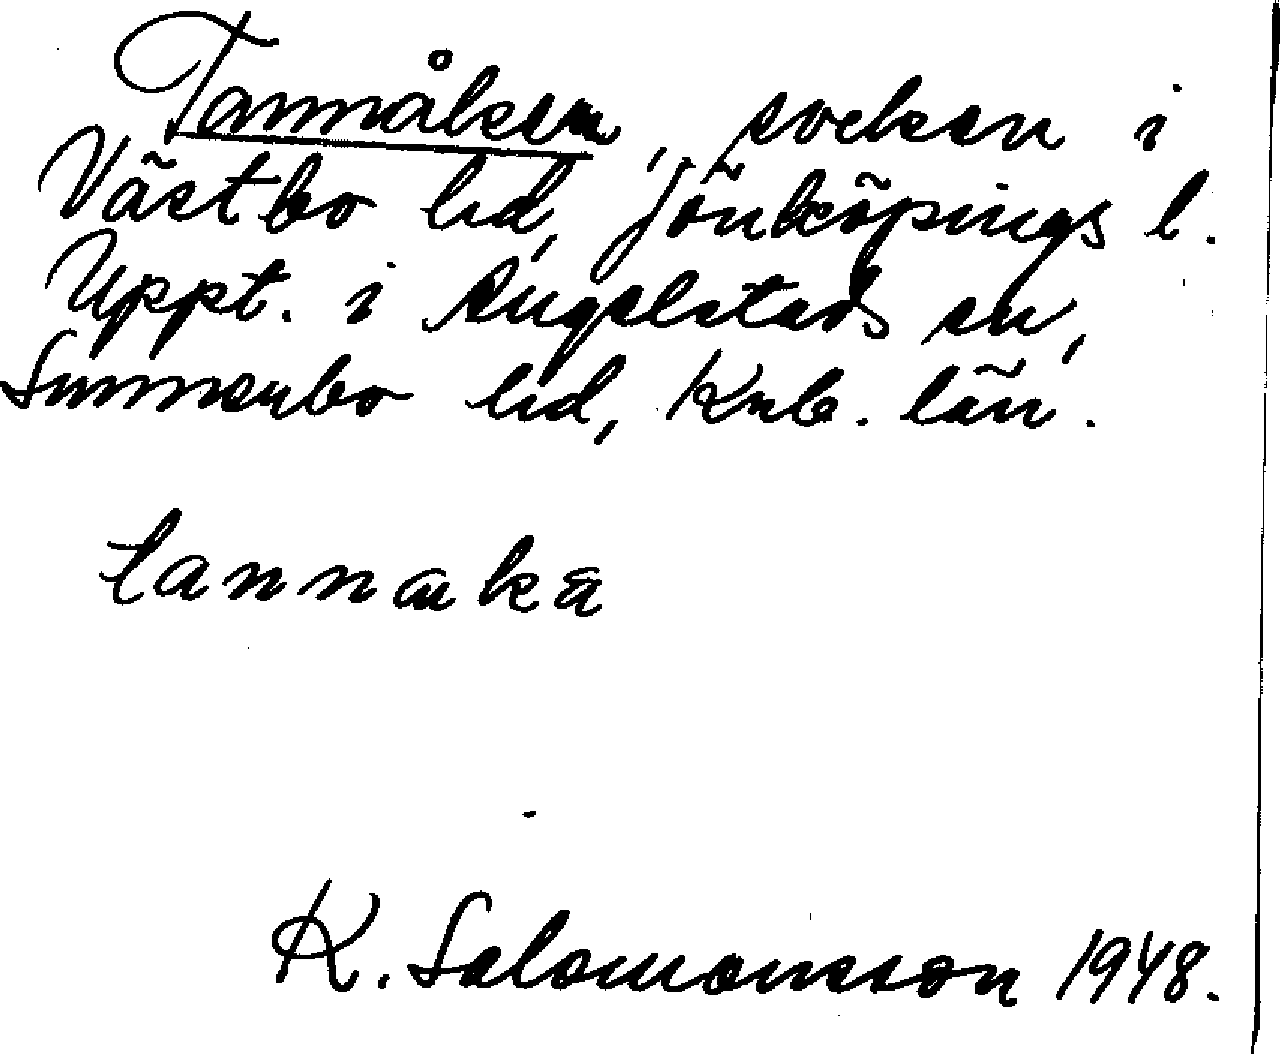 Tannåkern, socken i
Västbo hd, Jönköpings l.
Uppt. i Angelstads sn,
Sunnerbo hd, Krb. län.
tannaka
K. Salomonsson 1948.